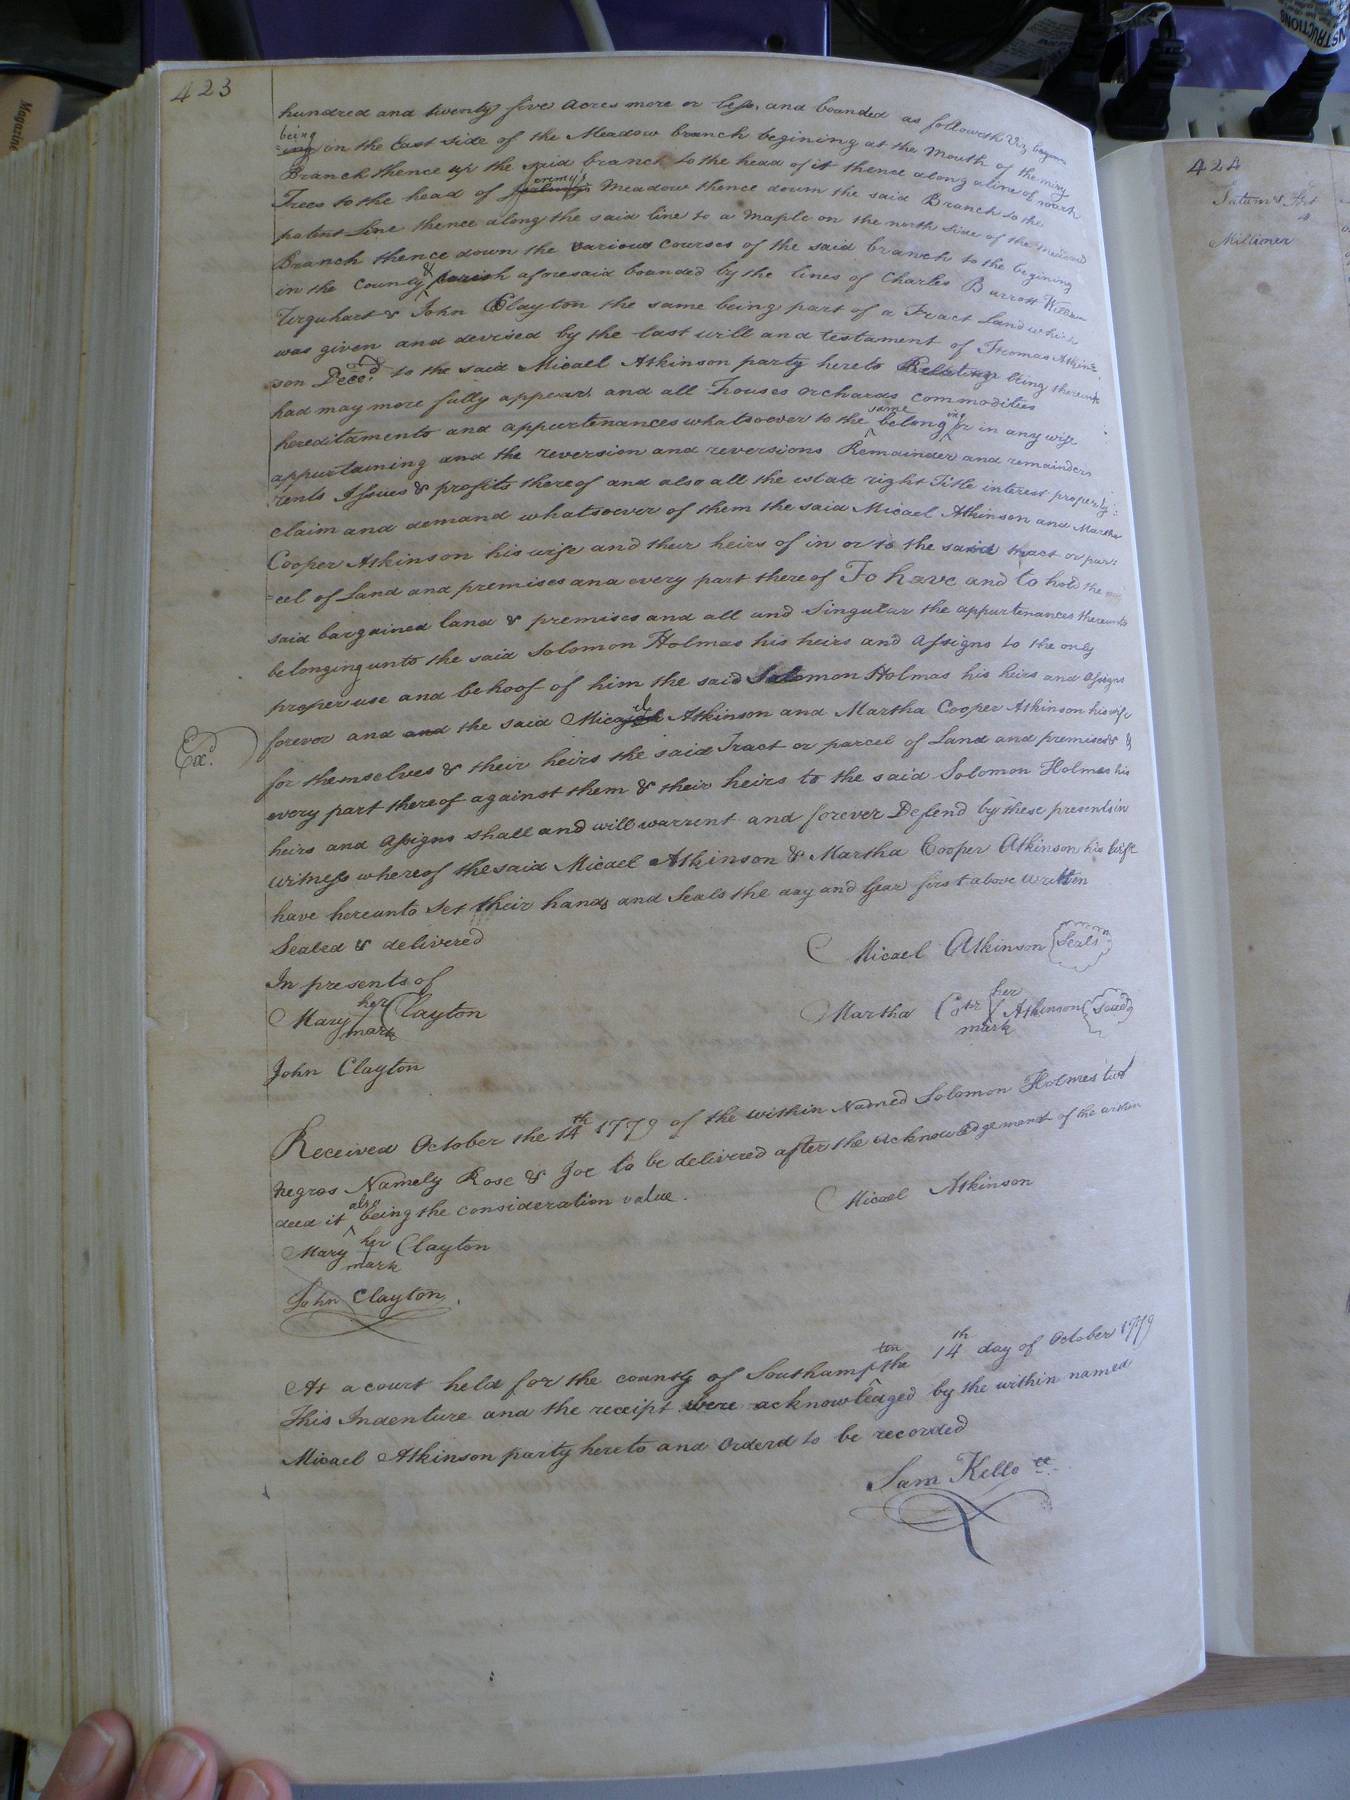 423
hundred and twenty five acres more or less, and bounded as followeth Viz
being on the East side of the Meadow branch begining at the Mouth of the miry
Branch thence up the said branch to the head of it thence along a line of mark
Trees to the head of Jeremy's Meadow thence down the said Branch to the
patent Line thence along the said line to a Maple on the north side of the
Branch thence down the various courses of the said branch to the begining
in the County & parish aforesaid bounded by the lines of Charles Barrott William
Urquhart & John Clayton the same being part of a Tract Land which
was given and devised by the last will and testament of Thomas Atkin=
son Deced. to the said Micael Atkinson party hereto Relation being thereunto
had may more fully appear, and all houses orchards commodities
hereditaments and appurtenances whatsoever to the same belonging or in any wise
appurtaining and the reversion and reversions Remainder and remainders
rents Issues & profits thereof and also all the estate right Title interest property
claim and demand whatsoever of them the said Micael Atkinson and Martha
Cooper Atkinson his wife and their heirs of in or to the said tract or par:
=cel of Land and premises and every part thereof To have and to hold the
said bargained land & premises and all and Singular the appurtenances thereunto
belonging unto the said Solomon Holmas his heirs and assigns to the only
proper use and behoof of him the said Solomon Holmas his heirs and assigns
Exd.
forever and and the said Micael Atkinson and Martha Cooper Atkinson his wife
for themselves & their heirs the said Tract or parcel of Land and premises & &
every part thereof against them & their heirs to the said Solomon Holmes his
heirs and assigns shall and will warrent and forever Defend by these presents in
witness whereof the said Micael Atkinson & Martha Cooper Atkinson his wife
have hereunto Set their hands and Seals the day and year first above written
Sealed & delivered
Micael Atkinson Seals
In presents of
Mary her mark Clayton
Martha Cotr her mark Atkinson Seal
John Clayton
Received October the 14th 1779 of the within Named Solomon Holmes two
negros Namely Rose & Joe to be delivered after the acknowledgement of the within
deed it also being the consideration value.
Micael Atkinson
Mary her mark Clayton
John Clayton.
At a court held for the county of Southampton the 14th day of October 1779
This Indenture and the receipt were acknowledged by the within named
Micael Atkinson party hereto and Orderd to be recorded
Sam Kello cc
424
Millimer
Magazine
INSTRUCTIONS